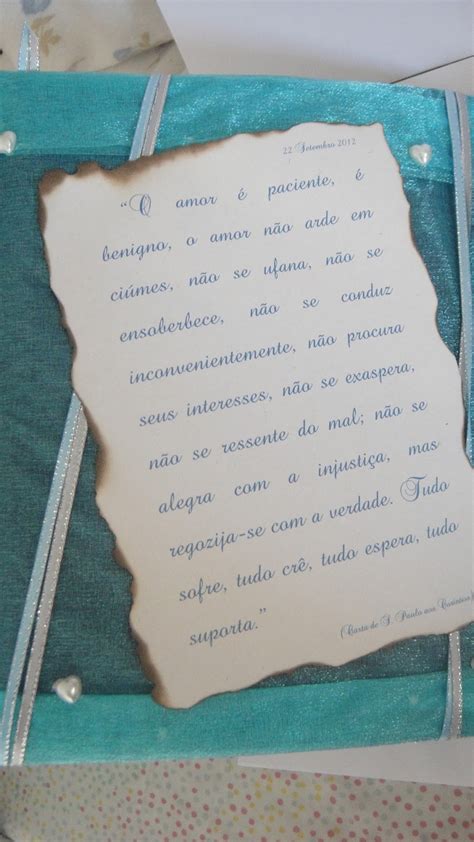 22 Setembro 2012
"O amor é paciente, é
benigno, o amor não arde em
ciúmes, não se ufana, não se
ensoberbece, não se conduz
inconvenientemente, não procura
seus interesses, não se exaspera,
não se ressente do mal; não se
alegra com a injustiça, mas
regozija-se com a verdade. Tudo
sofre, tudo crê, tudo espera, tudo
suporta."
(Carta de S. Paulo aos Coríntios)